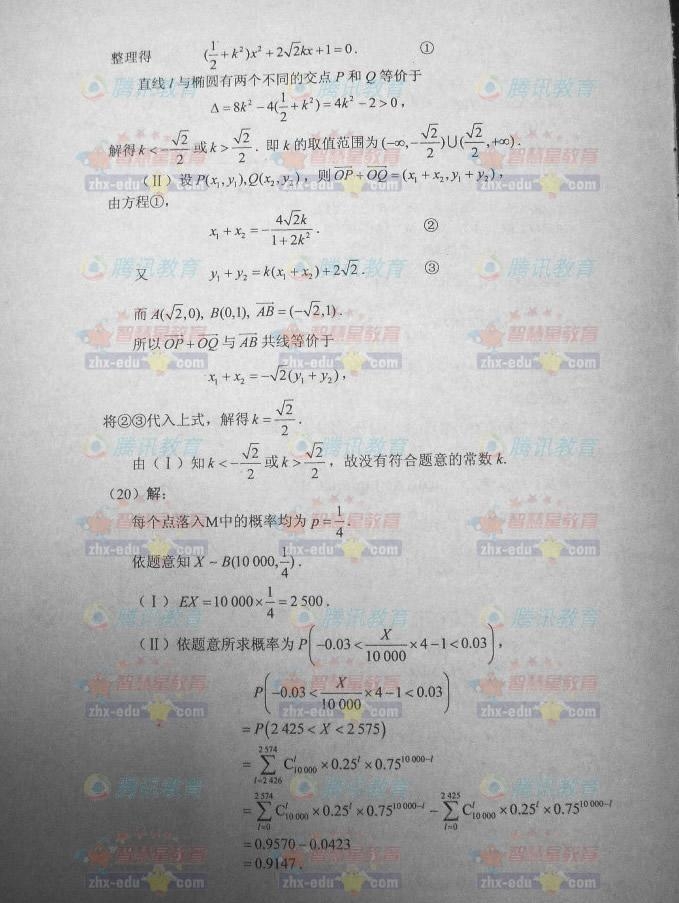 整理得 (1/2+k²)x²+2√2kx+1=0. ①
直线 l 与椭圆有两个不同的交点 P 和 Q 等价于
Δ=8k²-4(1/2+k²)=4k²-2>0,
解得 k<-√2/2 或 k>√2/2. 即 k 的取值范围为 (-∞,-√2/2)∪(√2/2,+∞).
(Ⅱ) 设 P(x₁,y₁),Q(x₂,y₂), 则 OP+OQ=(x₁+x₂,y₁+y₂),
由方程①,
x₁+x₂=-4√2k/(1+2k²). ②
又 y₁+y₂=k(x₁+x₂)+2√2. ③
而 A(√2,0), B(0,1), AB=(-√2,1).
所以 OP+OQ 与 AB 共线等价于
x₁+x₂=-√2(y₁+y₂),
将②③代入上式，解得 k=√2/2.
由 (Ⅰ) 知 k<-√2/2 或 k>√2/2, 故没有符合题意的常数 k.
(20) 解:
每个点落入M中的概率均为 p=1/4.
依题意知 X ~ B(10 000,1/4).
(Ⅰ) EX=10 000×1/4=2 500.
(Ⅱ) 依题意所求概率为 P(-0.03<X/10 000×4-1<0.03),
P(-0.03<X/10 000×4-1<0.03)
=P(2 425<X<2 575)
=∑_{l=2 426}^{2 574} C_{10 000}^{l}×0.25^{l}×0.75^{10 000-l}
=∑_{l=0}^{2 574} C_{10 000}^{l}×0.25^{l}×0.75^{10 000-l}-∑_{l=0}^{2 425} C_{10 000}^{l}×0.25^{l}×0.75^{10 000-l}
=0.9570-0.0423
=0.9147.
腾讯教育
智慧星教育
zhx-edu com